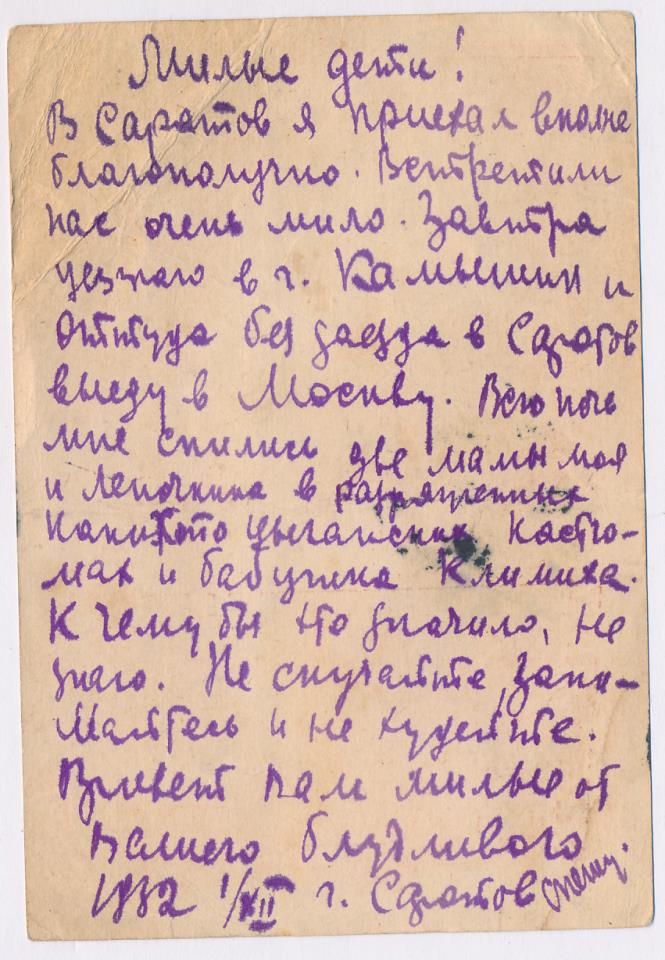 Милые дети!
В Саратов я приехал вполне
благополучно. Встретили
нас очень мило. Завтра
уезжаю в г. Камышин и
оттуда без заезда в Саратов
выеду в Москву. Всю ночь
мне снились две мамы моя
и Леночкина в разряженных
каких то цыганских кастю-
мах и бабушка Климиха.
К чему бы это значило, не
знаю. Не скучайте, зани-
майтесь и не худейте.
Привет вам милые от
вашего блудливого.
1932 1/XII г. Саратов